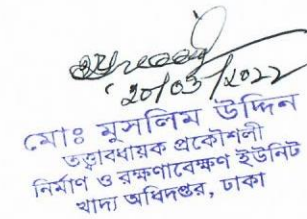 ২০/০৩/২০২২
মোঃ মুসলিম উদ্দিন
তত্ত্বাবধায়ক প্রকৌশলী
নির্মাণ ও রক্ষণাবেক্ষণ ইউনিট
খাদ্য অধিদপ্তর, ঢাকা